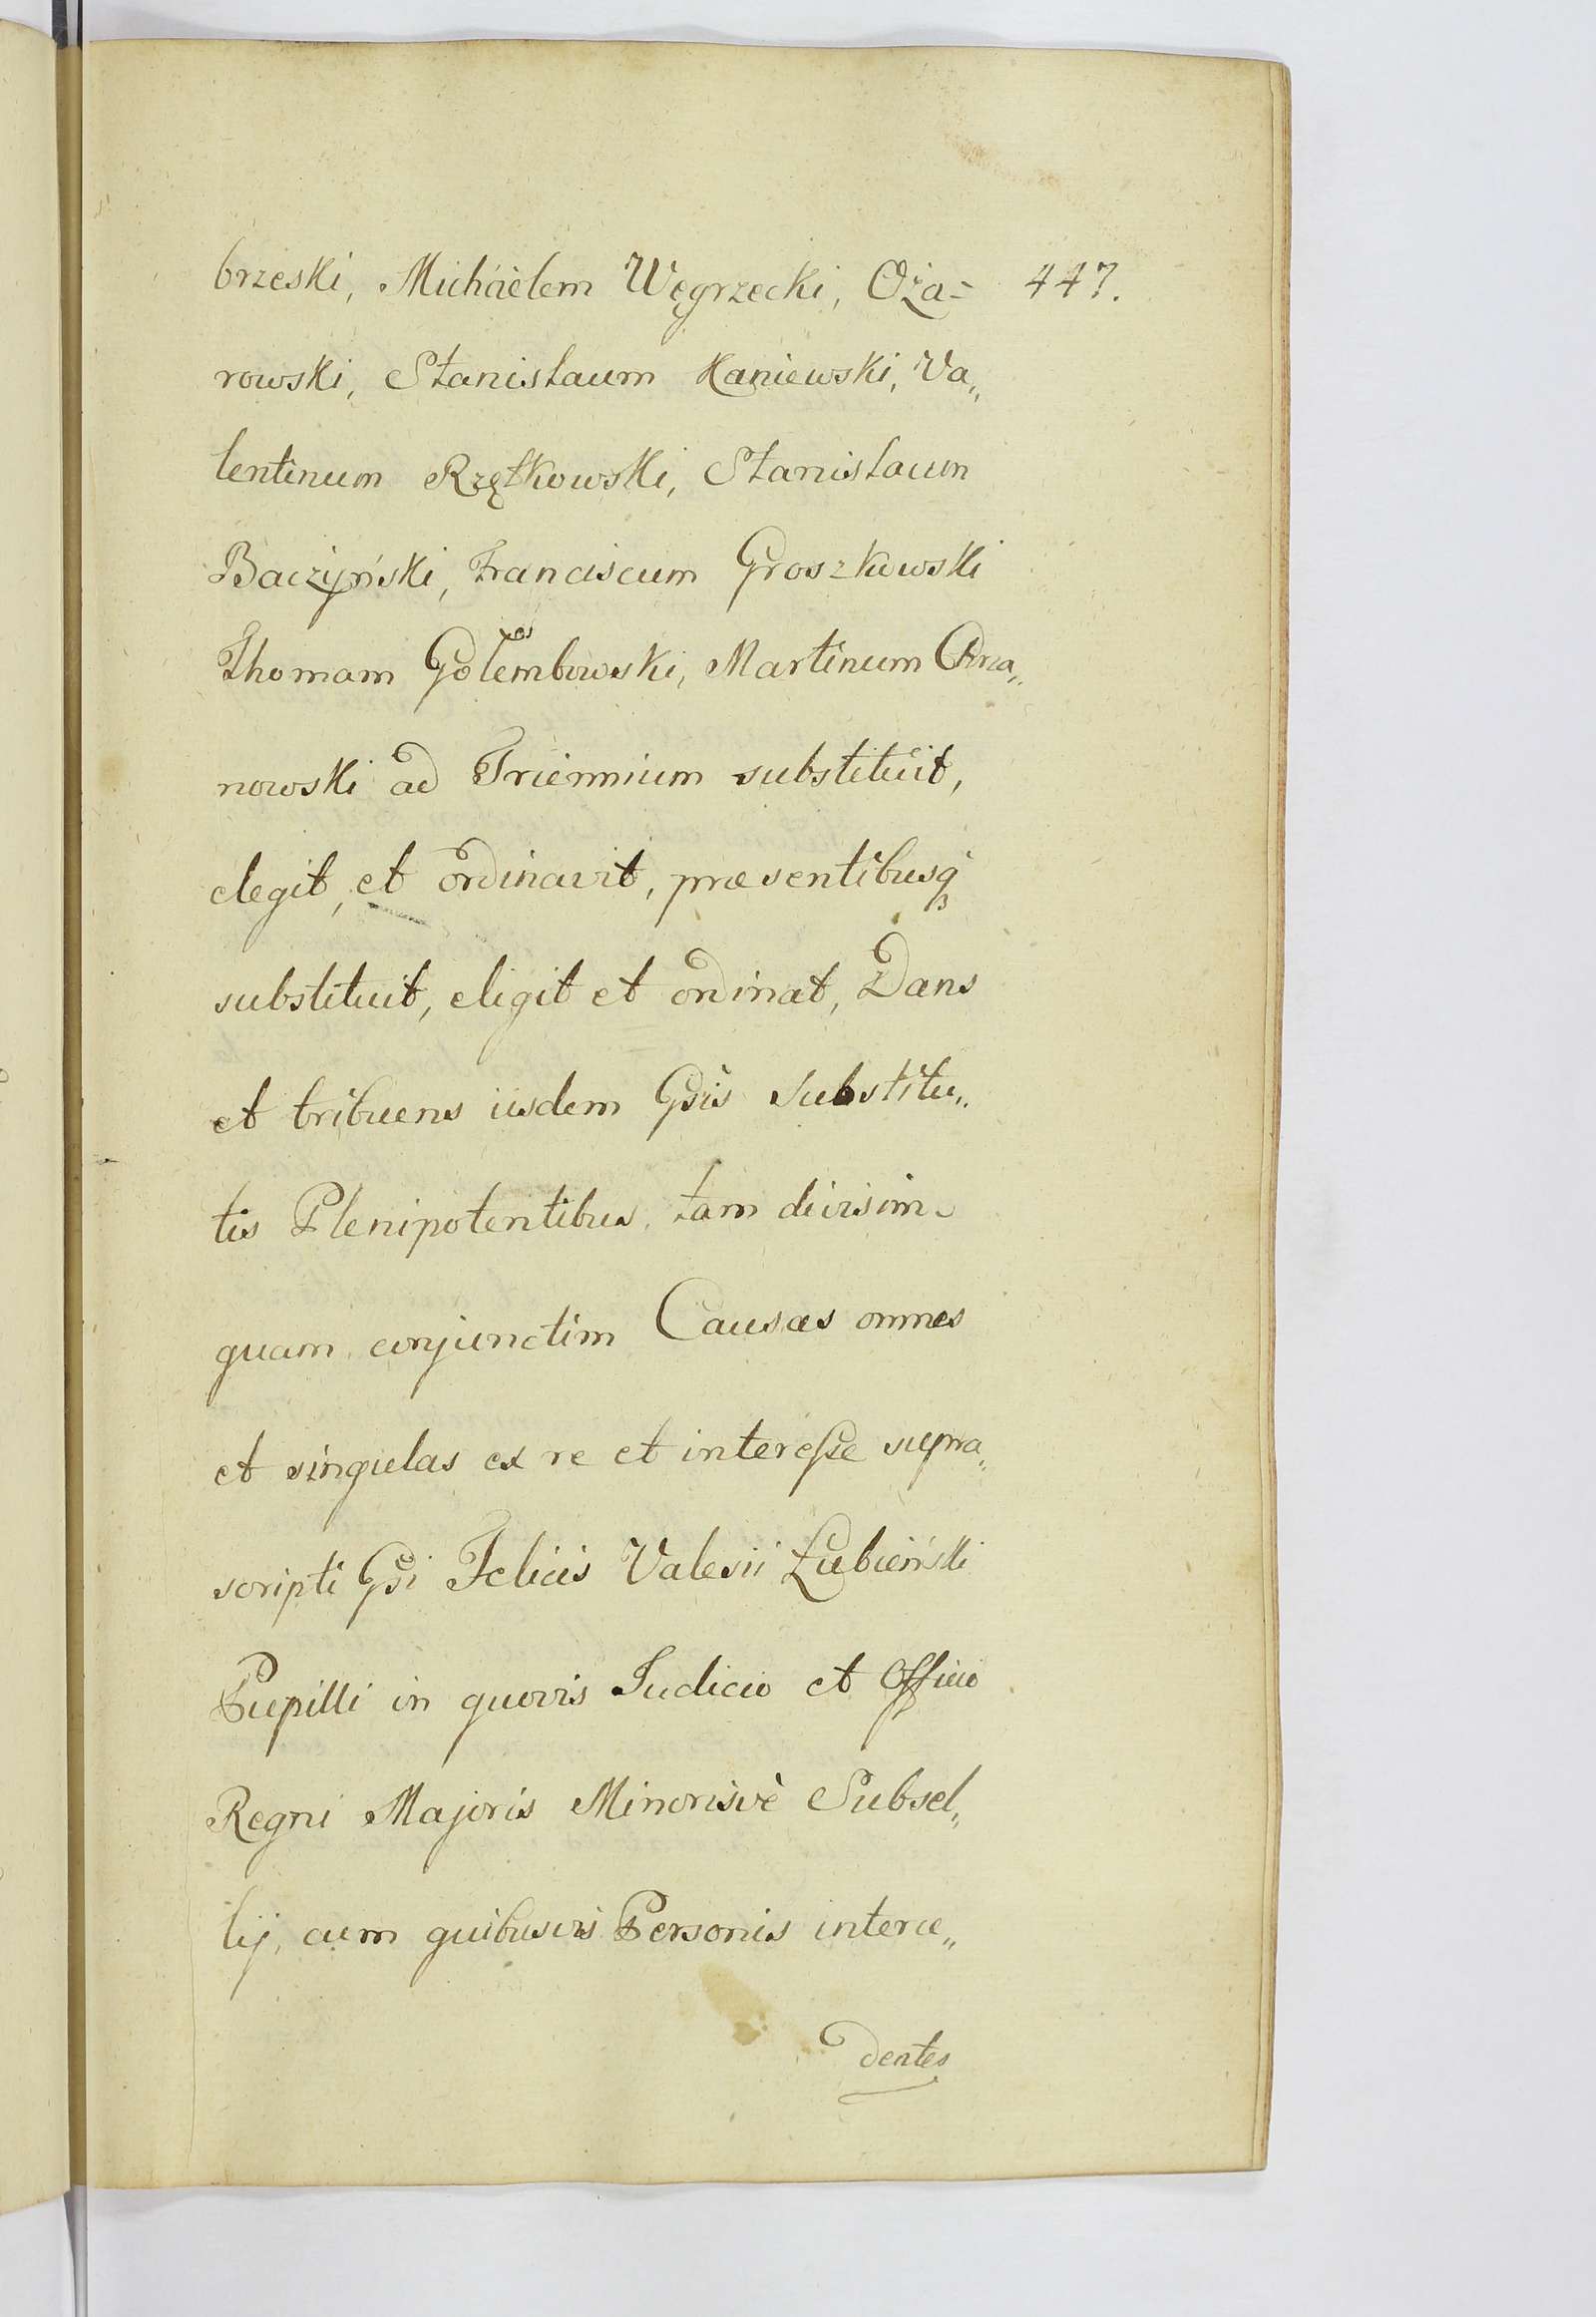 brzeski, Michäelem Węgrzecki, Oża= 447.
rowski, Stanisłaum Kaniewski, Va„
lentinum Rzętkowski, Stanisłaum
Baczyński, Franciscum Groszkowski
Thomam Gołembowski, Martinum
nowski ad Triennium substituit,
elegit, et ordinavit, præsentibusq̢
substituit, eligit et ordinat, Dans
et tribuens iisdem Gsis Substitu„
tis Plenipotentibus, tam divisim
quam conjunctim Causas omnes
et singulas ex re et interesse supra„
scripti Gsi Felicis Valesii Łubieński
Pupilli in quovis Iudicio et Officio
Regni Majoris Minorisvè Subsel„
lij, cum quibusvis Personis interce„
dentes